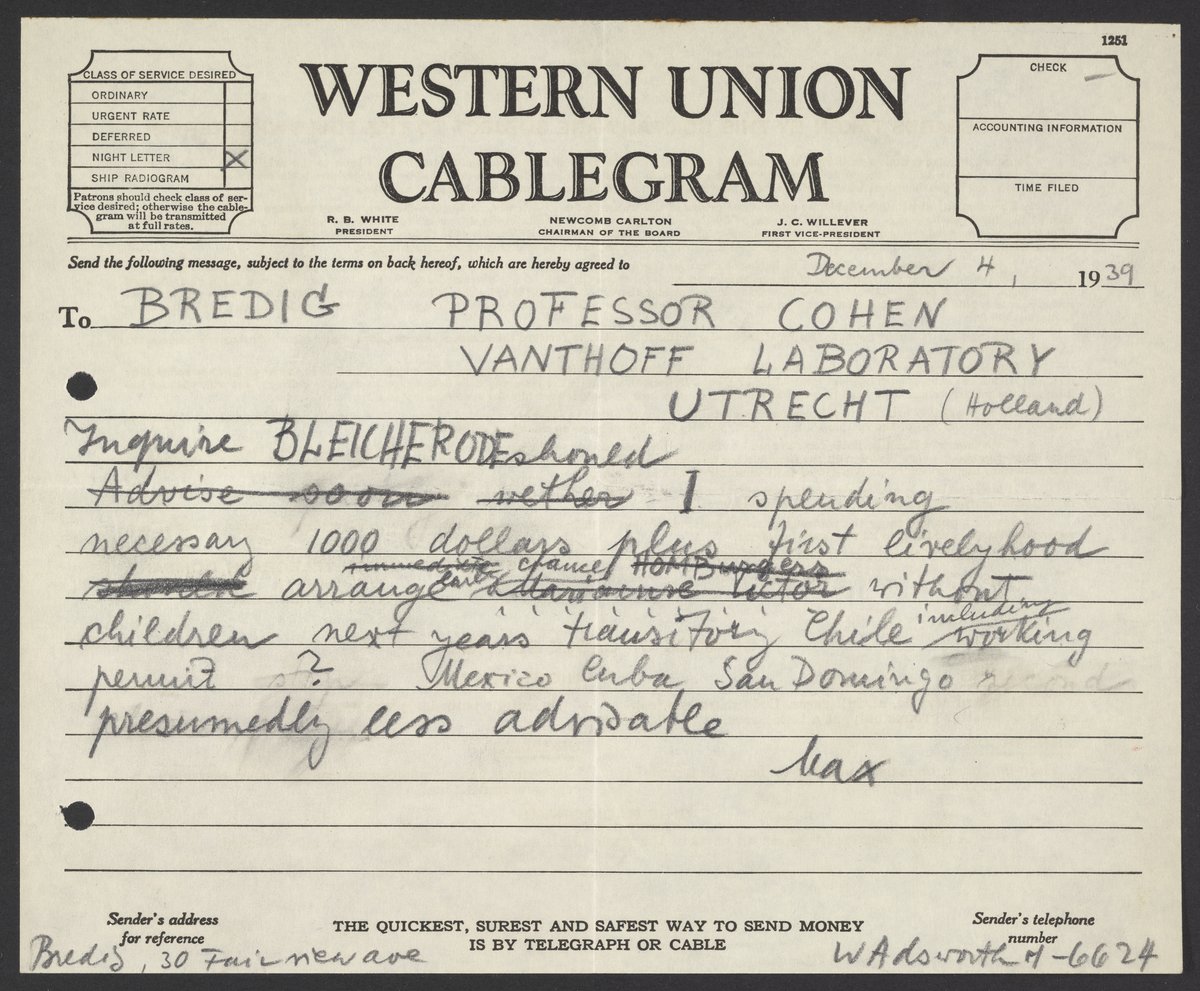 1251
CLASS OF SERVICE DESIRED
ORDINARY
URGENT RATE
DEFERRED
NIGHT LETTER X
SHIP RADIOGRAM
Patrons should check class of ser-
vice desired; otherwise the cable-
gram will be transmitted
at full rates.
WESTERN UNION
CABLEGRAM
R. B. WHITE
PRESIDENT
NEWCOMB CARLTON
CHAIRMAN OF THE BOARD
J. C. WILLEVER
FIRST VICE-PRESIDENT
CHECK
ACCOUNTING INFORMATION
TIME FILED
Send the following message, subject to the terms on back hereof, which are hereby agreed to
December 4, 1939
To BREDIG PROFESSOR COHEN
VANTHOFF LABORATORY
UTRECHT (Holland)
Inquire BLEICHERODE should
Advise soon wether I spending
necessary 1000 dollars plus first livelyhood
immediate chance HOMBurgers
arrange early without
children next years transitory Chile including working
permit ? Mexico Cuba San Domingo second
presumedly less advisable
Max
Sender's address
for reference
THE QUICKEST, SUREST AND SAFEST WAY TO SEND MONEY
IS BY TELEGRAPH OR CABLE
Sender's telephone
number
Bredig, 30 Fairview ave
WAdsworth 7-6624